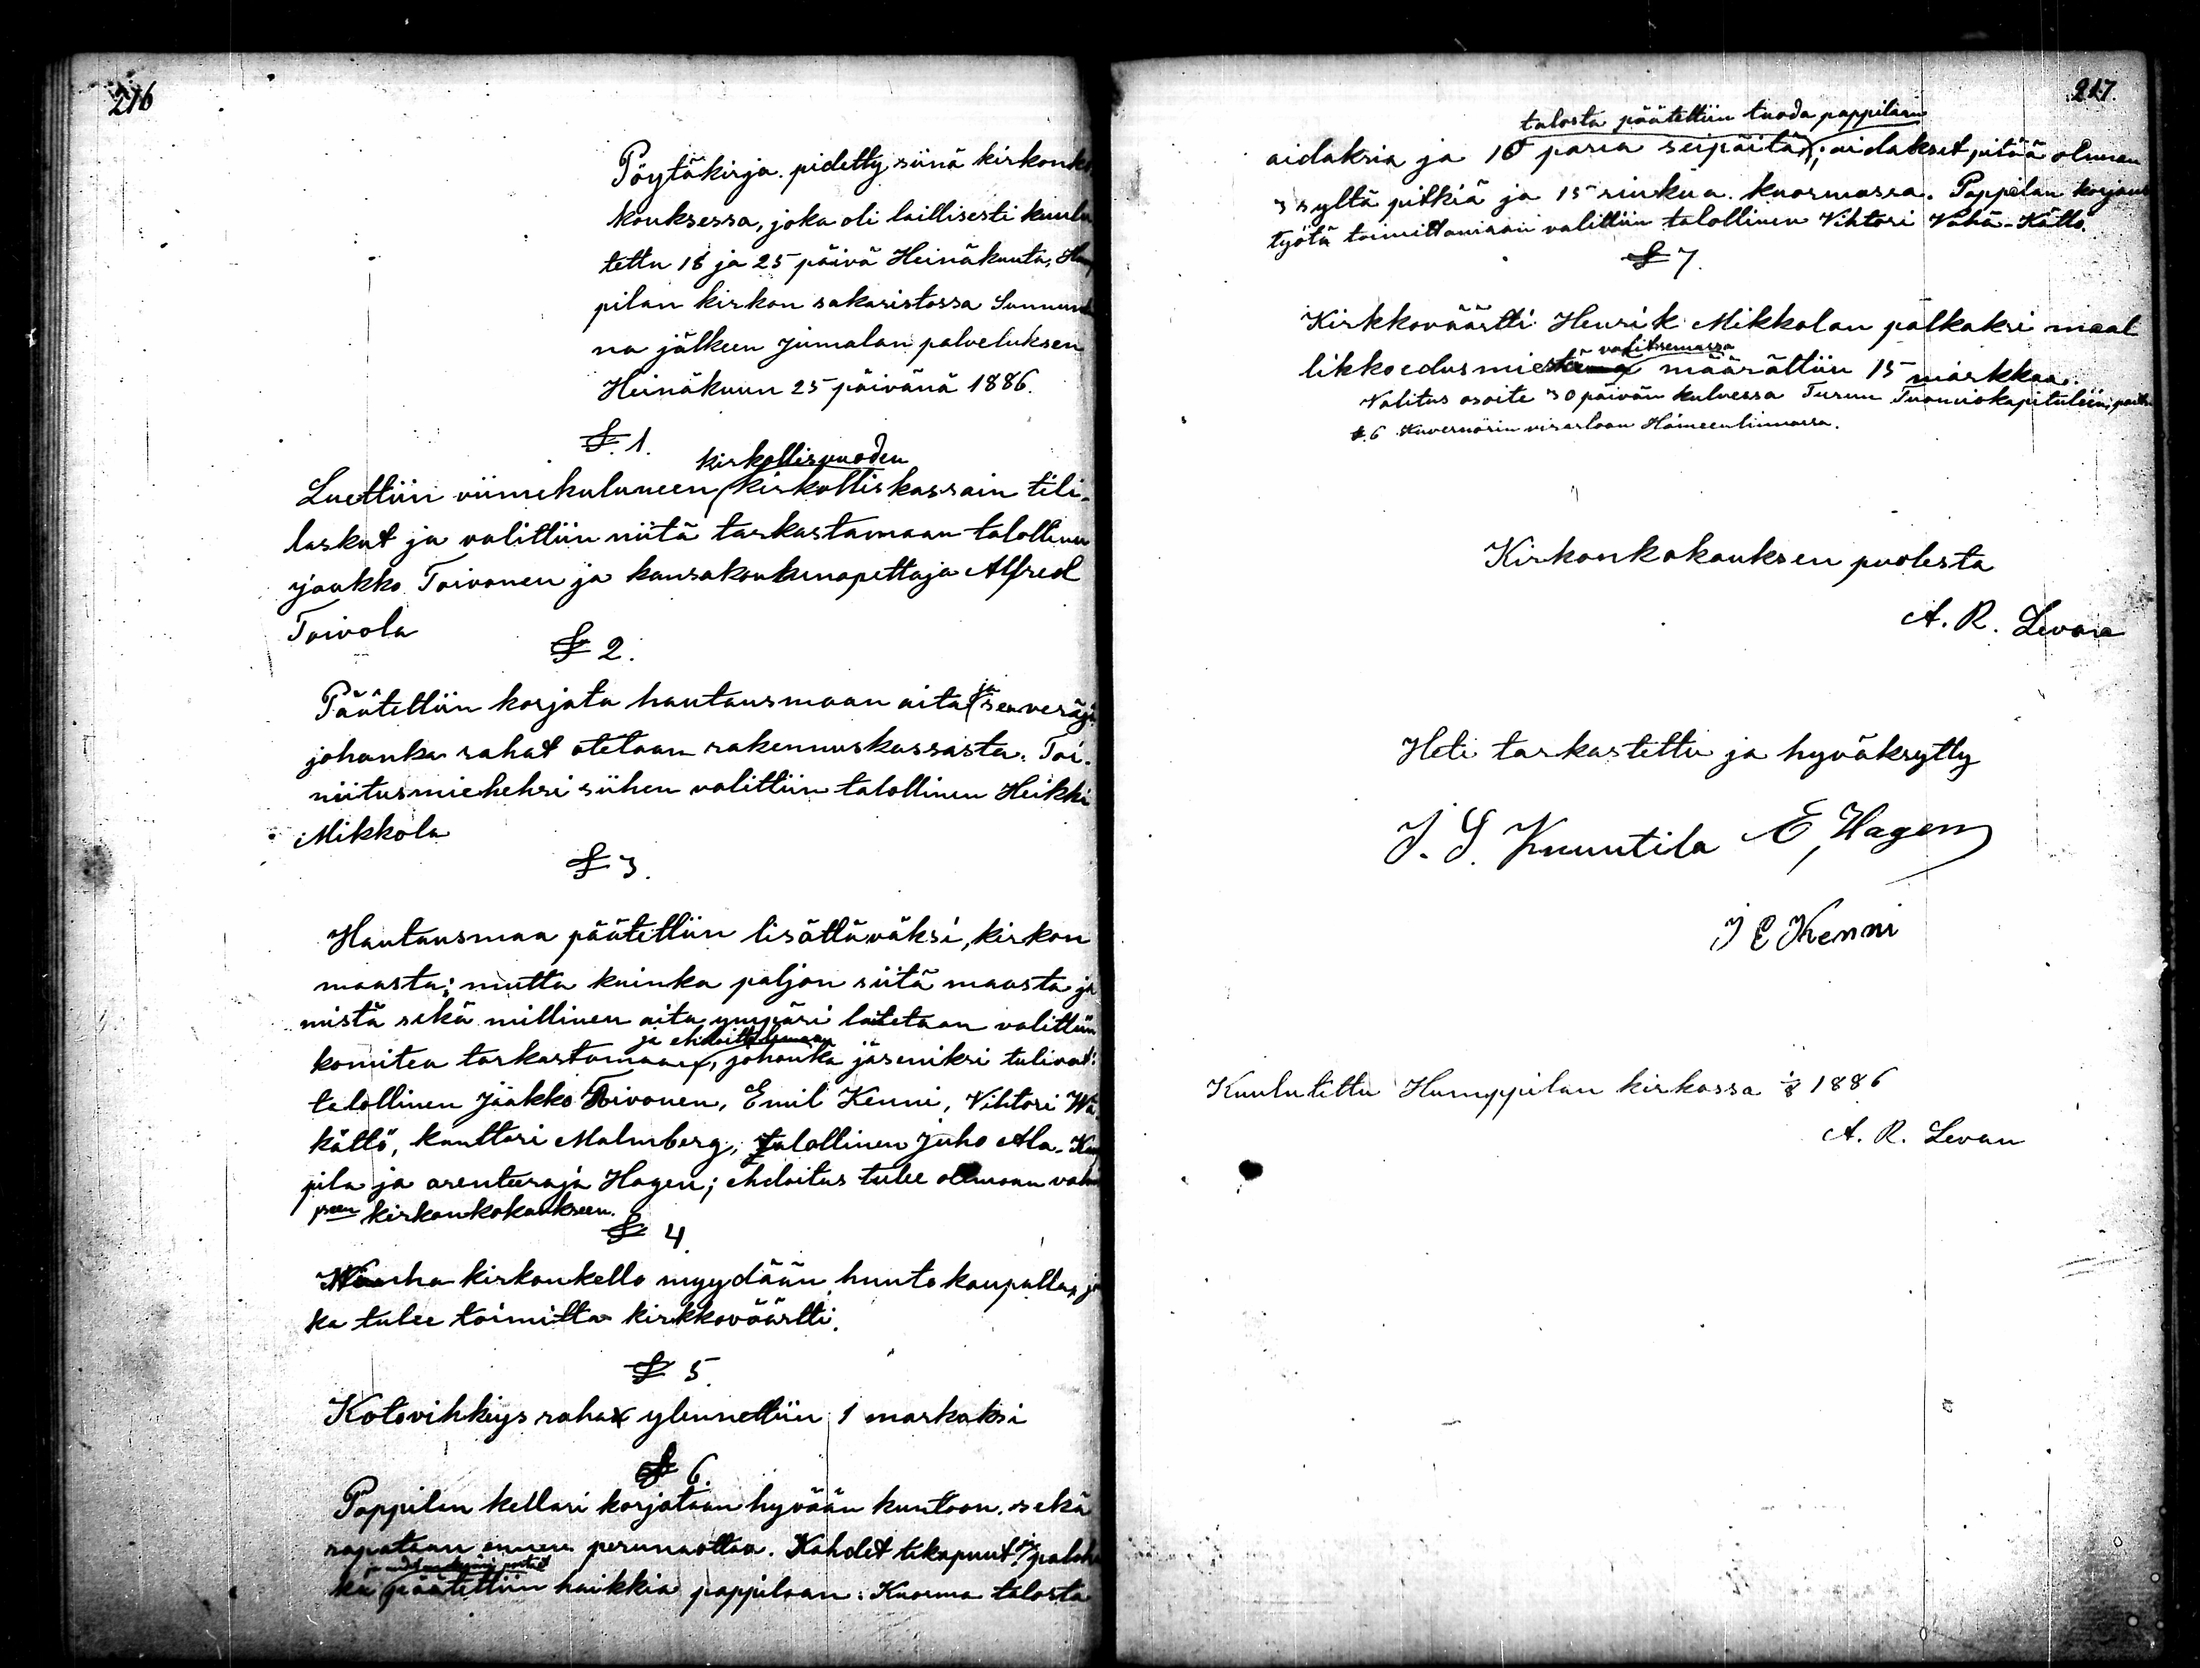 216
Pöytäkirja pidetty siinä kirkonko
kouksessa, joka oli laillisesti kuulu
tettu 18 ja 25 päivä Heinäkuuta, Hump
pilan kirkon sakaristossa Sunnun
na jälkeen jumalan palveluksen
Heinäkuun 25 päivänä 1886.
§. 1.
kirkollisvuoden
Luettiin viimekuluneen kirkolliskassain tili-
laskut ja valittiin niitä tarkastamaan talollinen
Jaakko Toivonen ja kansakoulunopettaja Alfred
Toivola
§ 2.
ja
Päätettiin korjata hautausmaan aita sen veräjä
johonka rahat otetaan rakennuskassasta. Toi-
miitusmieheksi siihen valittiin talollinen Heikki
Mikkola
§ 3.
Hautausmaa päätettiin lisättäväksi, kirkon
maasta; mutta kuinka paljon siitä maasta ja
mistä sekä millinen aita ympäri laitetaan valittiin
ja ehdoittelemaan
komitea tarkastamaan, johonka jäseniksi tulivat:
talollinen Jaakko Toivonen, Emil Kenni, Vihtori Wä
kättö, kanttori Malmberg, talollinen Juho Ala-
pila ja arenteeraja Hagen; ehdoitus tulee ollmaan
kirkonkokoukseen.
§ 4.
Wanha kirkonkello myydään huutokaupalla, jo
ka tulee toimitta kirkkoväärtti.
§ 5.
Kotovihkiys raha ylennettiin 1 markaksi
§ 6.
Pappilan kellari korjataan hyvään kuntoon. sekä
rapataan ennen perunaottoa. Kahdet tikapuut ja
ka päätettiin haikkia pappilaan. Kuorma talosta
217.
talosta päätettiin tuoda pappilaan
aidaksia ja 10 paria seipäitä; aidakset pitää oleman
3 syltä pitkiä ja 15 sinkua kuormassa. Pappilan korjaus
työtä toimittamaan valittiin talollinen Vihtori Vähä-Kättö.
§ 7.
Kirkkoväärtti Henrik Mikkolan palkaksi maal
valitsemassa
likkoedusmiestä määrättiin 15 markkaa.
Valitus osoite 30 päivän kuluessa Turun Tuomiokapituliin, paitsi
§. 6 Kuvernörin virastoon Hämeenlinnassa.
Kirkonkokouksen puolesta
A. R. Levan
Heti tarkastettu ja hyväksytty
J. G. Knuutila E, Hagen
J E Kenni
Kuulutettu Humppilan kirkossa 1/8 1886
A. R. Levan